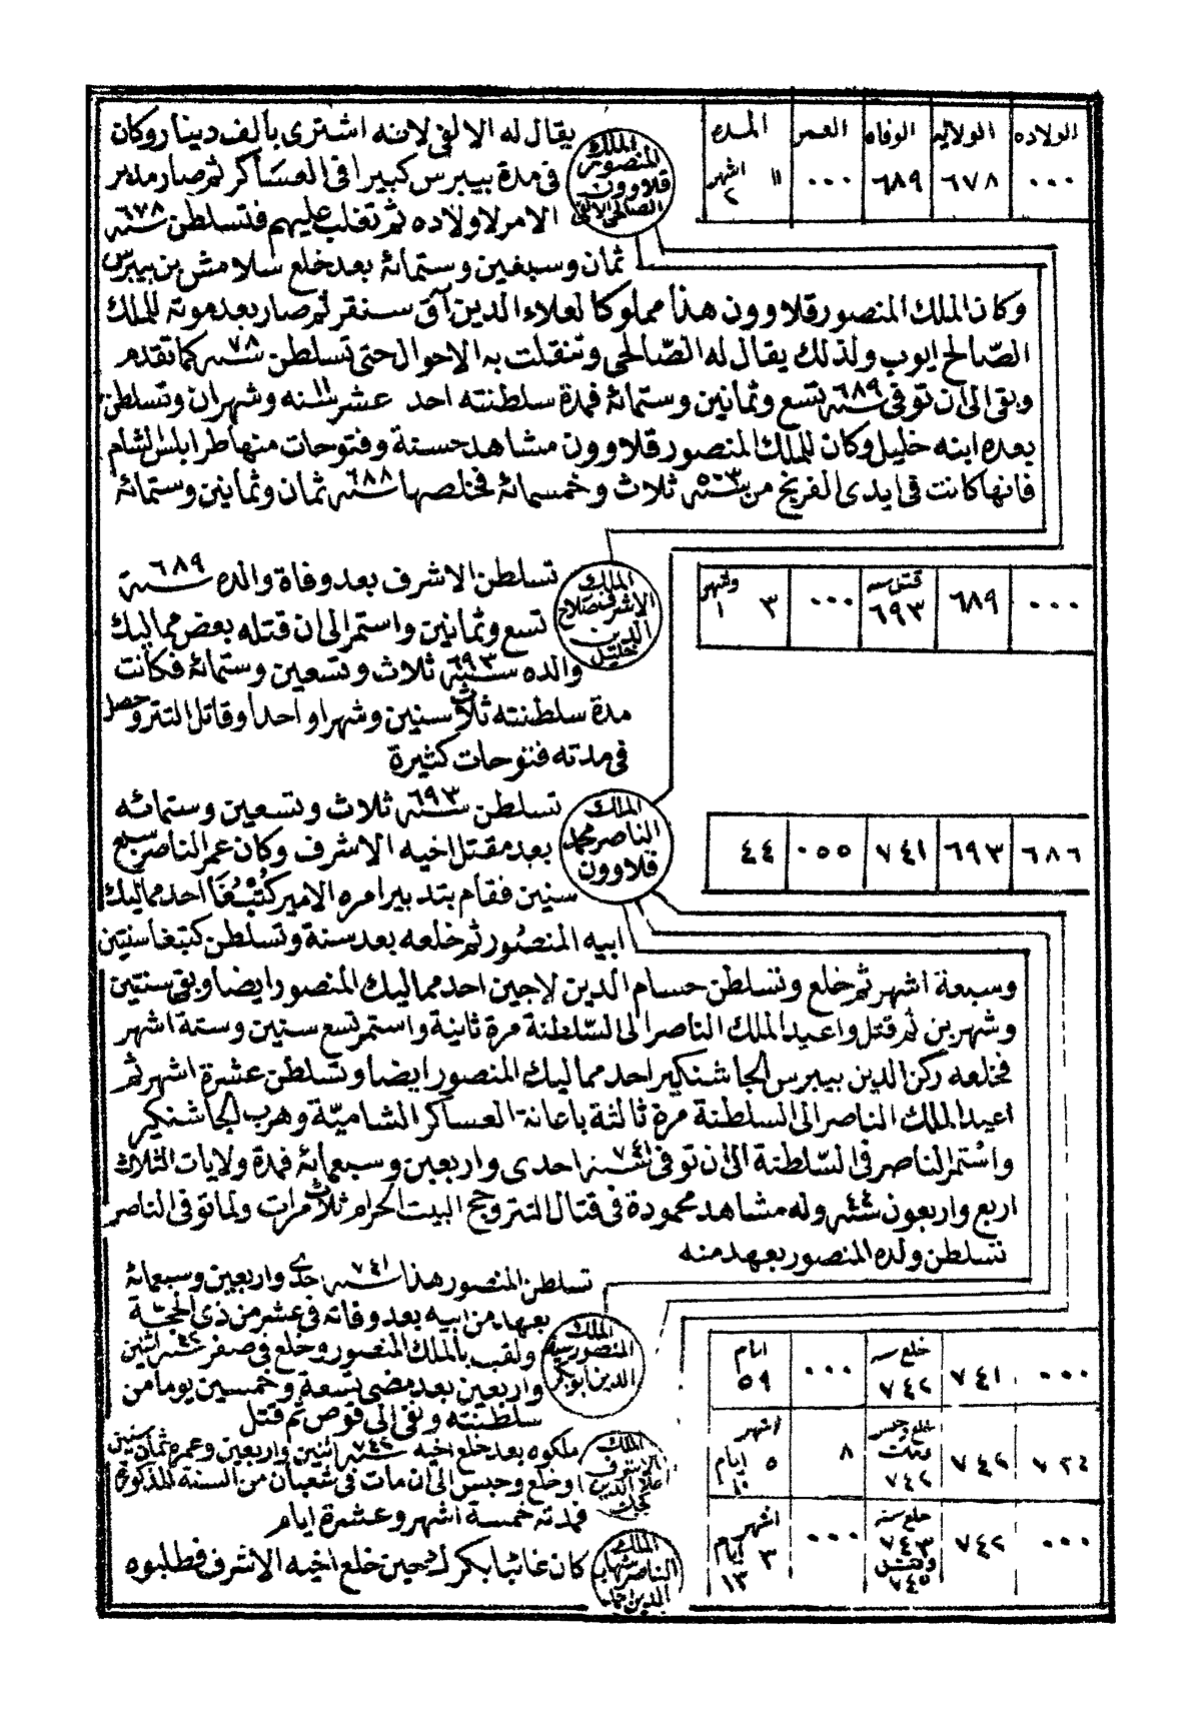 الولاده الولاية الوفاه العمر المدة
٠٠٠ ٦٧٨ ٦٨٩ ٠٠٠ ١١ اشهر ٢
الملك المنصور قلاوون الصالحى الالفى
يقال له الالفى لانه اشترى بالف دينار وكان
فى مدة بيبرس كبيرا فى العساكر ثم صار مدبر
الامر لاولاده ثم تغلب عليهم فتسلطن سنة ٦٧٨
ثمان وسبعين وستمائة بعد خلع سلامش بن بيبرس
وكان الملك المنصور قلاوون هذا مملوكا لعلاء الدين آق سنقر ثم صار بعد موته للملك
الصّالح ايوب ولذلك يقال له الصّالحى وتنقلت به الاحوال حتى تسلطن سنة ٧٨ كما تقدم
وبقى الى ان توفى سنة ٦٨٩ تسع وثمانين وستمائة فمدة سلطنته احد عشر سنه ١١ وشهران وتسلطن
بعده ابنه خليل وكان للملك المنصور قلاوون مشاهد حسنة وفتوحات منها طرابلس الشام
فانها كانت فى ايدى الفرنج من سنة ٥٠٣ ثلاث وخمسمائة فخلصها سنة ٦٨٨ ثمان وثمانين وستمائة
٠٠٠ ٦٨٩ قتل سنه ٦٩٣ ٠٠٠ ٣ وشهر ١
الملك الاشرف صلاح الدين خليل
تسلطن الاشرف بعد وفاة والده سنة ٦٨٩
تسع وثمانين واستمر الى ان قتله بعض مماليك
والده سنة ٦٩٣ ثلاث وتسعين وستمائة فكانت
مدة سلطنته ثلاث سنين وشهرا واحدا وقاتل التتر وحصل
فى مدته فتوحات كثيرة
٦٨٦ ٦٩٣ ٧٤١ ٠٥٥ ٤٤
الملك الناصر محمد قلاوون
تسلطن سنة ٦٩٣ ثلاث وتسعين وستمائه
بعد مقتل اخيه الاشرف وكان عمر الناصر سبع
سنين فقام بتدبير امره الامير كُتْبُغَا احد مماليك
ابيه المنصور ثم خلعه بعد سنة وتسلطن كتبغا سنتين
وسبعة اشهر ثم خلع وتسلطن حسام الدين لاجين احد مماليك المنصور ايضا وبقى سنتين
وشهرين ثم قتل واعيد الملك الناصر الى السّلطنة مرة ثانية واستمر تسع سنين وستة اشهر
فخلعه ركن الدين بيبرس الجاشنكير احد مماليك المنصور ايضا وتسلطن عشرة اشهر ثم
اعيد الملك الناصر الى السلطنة مرة ثالثة باعانة العساكر الشاميّة وهرب الجاشنكير
واستمر الناصر فى السّلطنة الى ان توفى سنه ٧٤١ احدى واربعين وسبعمائة فمدة ولايات الثلاث
اربع واربعون سنة ٤٤ وله مشاهد محمودة فى قتال التتر وحج البيت الحرام ثلاث مرات ولما توفى الناصر
تسلطن ولده المنصور بعهد منه
٠٠٠ ٧٤١ خلع سه ٧٤٢ ٠٠٠ ايام ٥٩
الملك المنصور سيف الدين ابوبكر
تسلطن المنصور هذا سنه ٧٤١ احدى واربعين وسبعمائة
بعهد من ابيه بعد وفاته فى عشر من ذى الحجّة
ولقب بالملك المنصور وخلع فى صفر سنه ٤٢ اثنين
واربعين بعد مضى تسعة وخمسين يوما من
سلطنته ونفى الى قوص ثم قتل
٧٣٤ ٧٤٢ خلع وحبس ومات ٧٤٢ ٨ اشهر ٥ ايام ١٠
الملك الاشرف علاء الدين كجك
ملكوه بعد خلع اخيه سنة ٧٤٢ اثنين واربعين وعمره ثمان سنين
وخلع وحبس الى ان مات فى شعبان من السنة المذكورة
فمدته خمسة اشهر وعشرة ايام
٠٠٠ ٧٤٢ خلع سنه ٧٤٣ وقتل ٧٤٥ ٠٠٠ اشهر ٣ ايام ١٣
الملك الناصر شهاب الدين احمد
كان غائبا بكرك حين خلع اخيه الاشرف فطلبوه